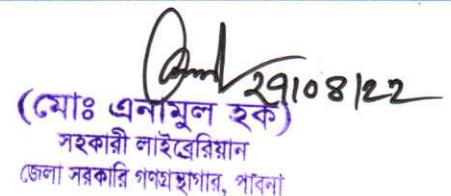 ২৭/০৪/২২
(মোঃ এনামুল হক)
সহকারী লাইব্রেরিয়ান
জেলা সরকারি গণগ্রন্থাগার, পাবনা